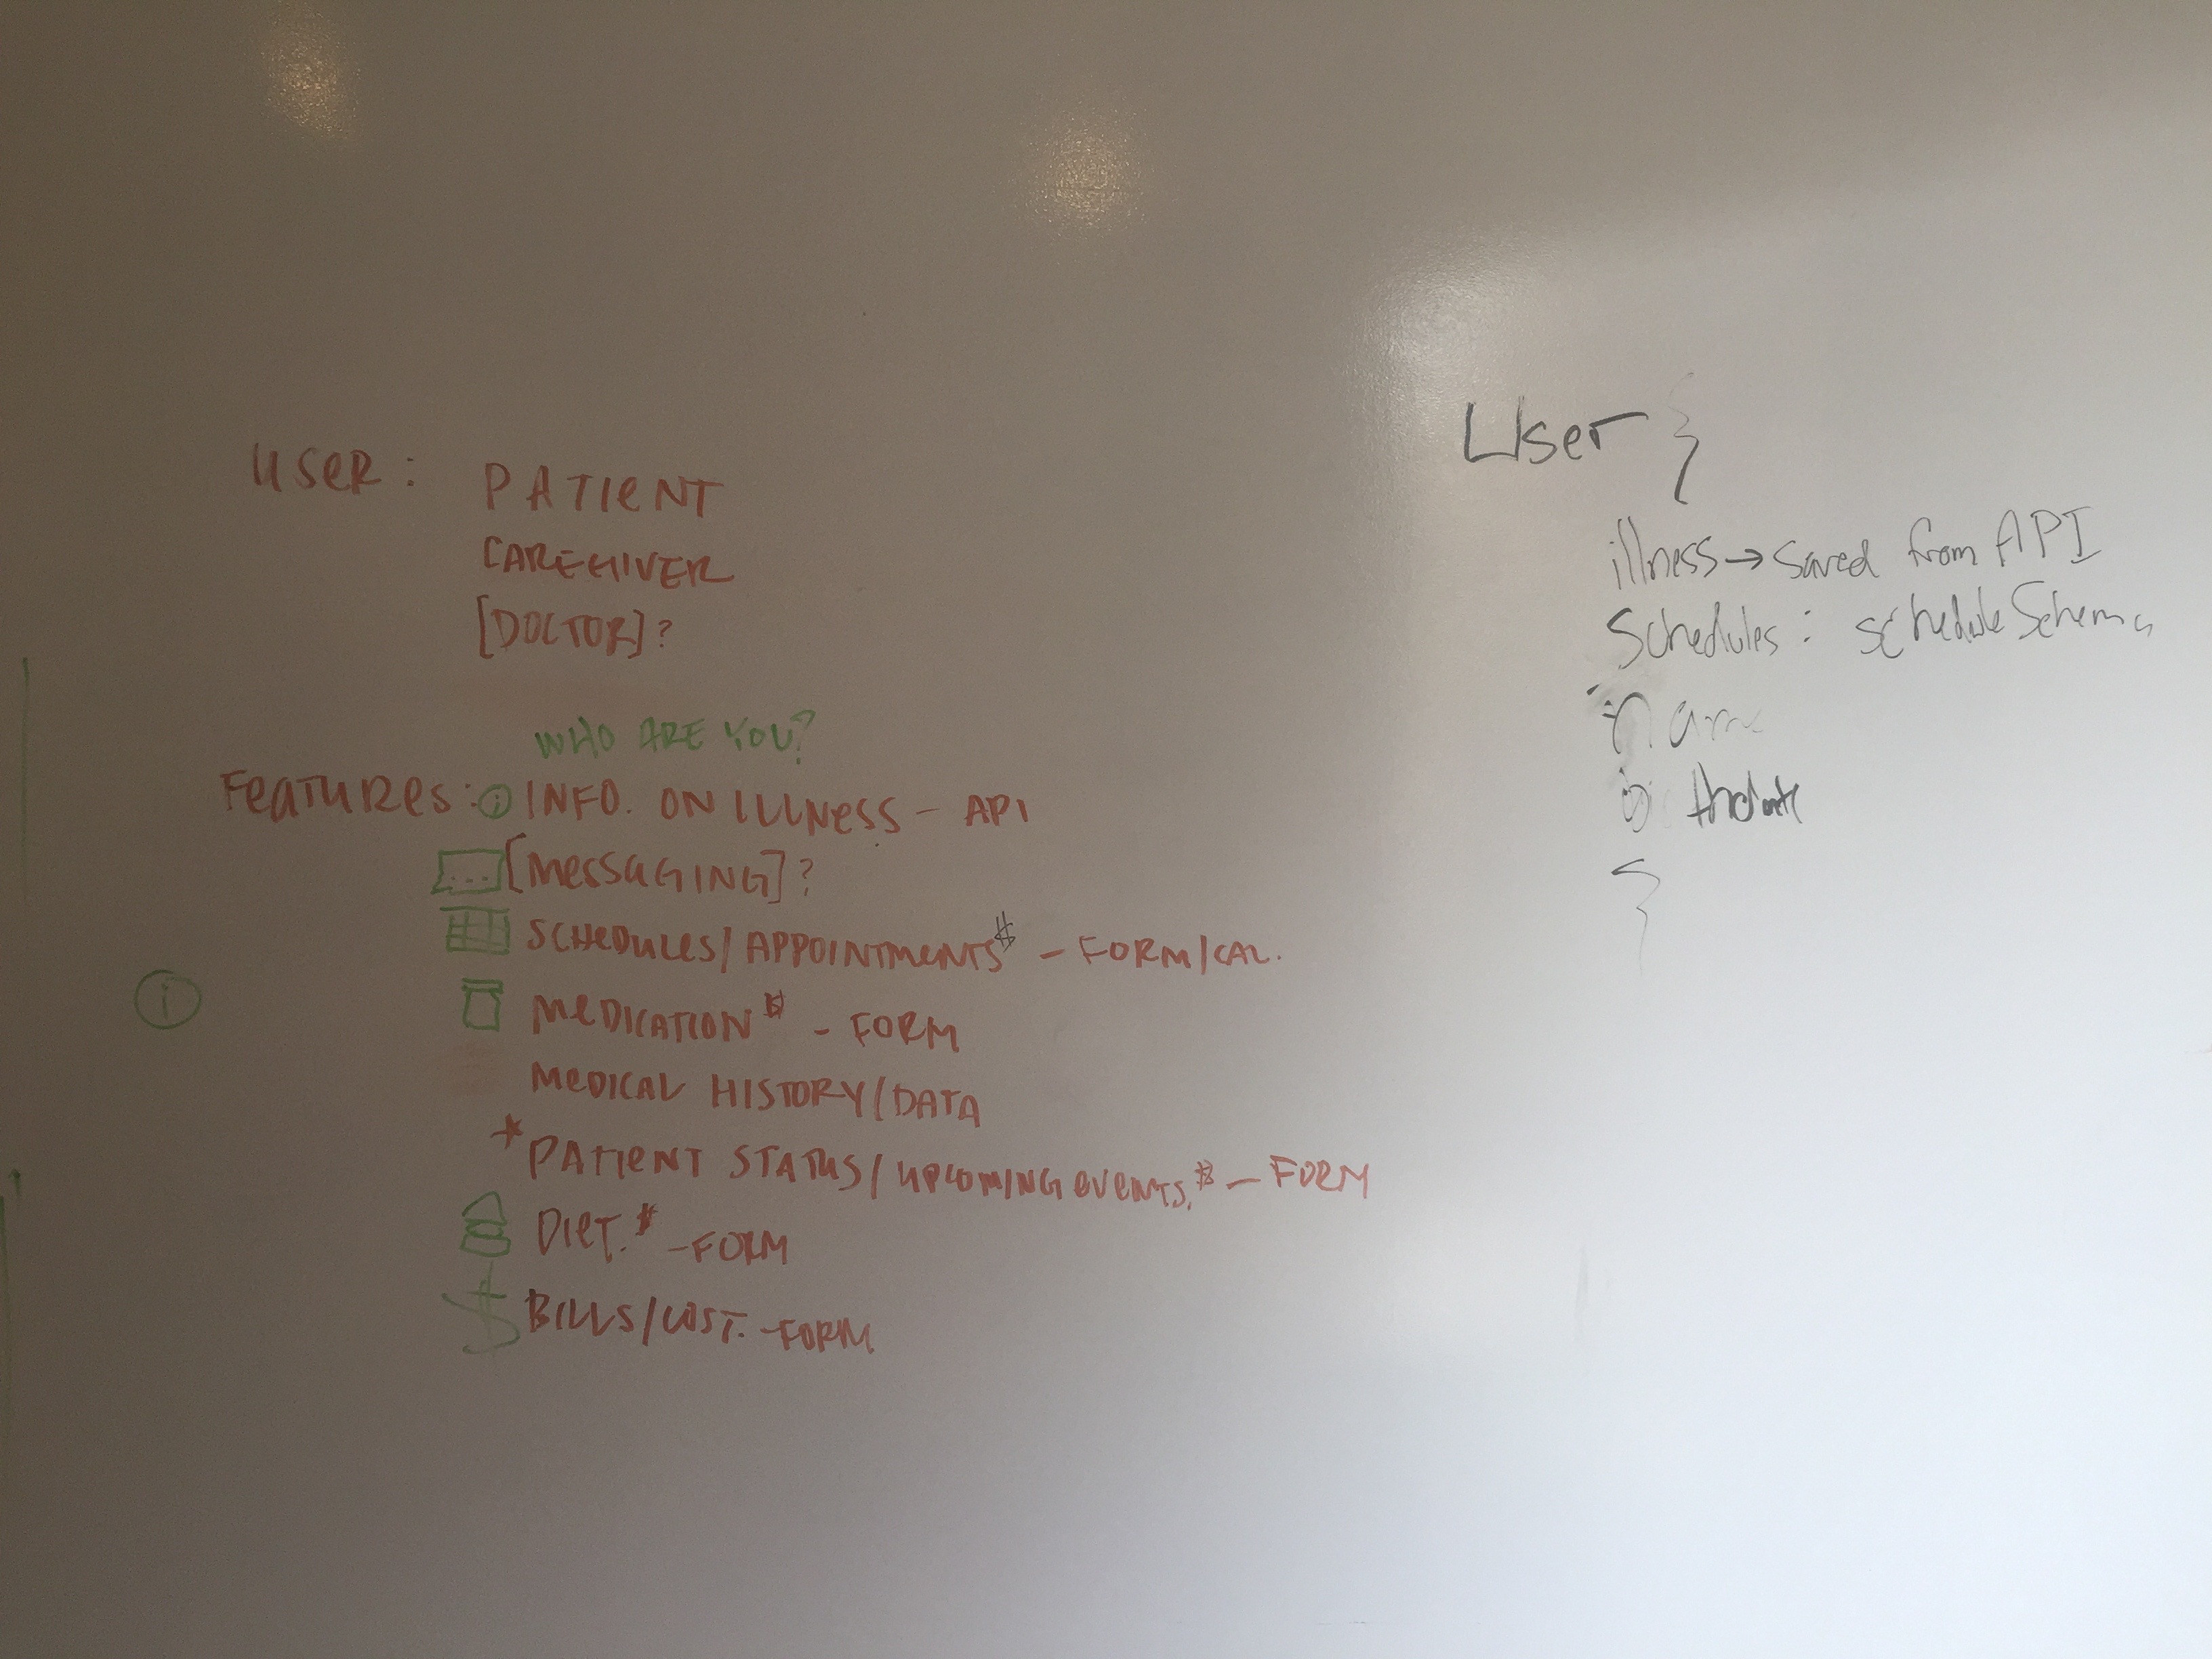 USER: PATIENT
CAREGIVER
[DOCTOR]?
WHO ARE YOU?
FEATURES: i INFO. ON ILLNESS - API
... [MESSAGING]?
SCHEDULES/APPOINTMENTS* - FORM/CAL.
i
MEDICATION* - FORM
MEDICAL HISTORY/DATA
*PATIENT STATUS/UPCOMING EVENTS.* - FORM
DIET.* - FORM
$ BILLS/COST. - FORM
User {
illness → saved from API
Schedules: scheduleSchema
}